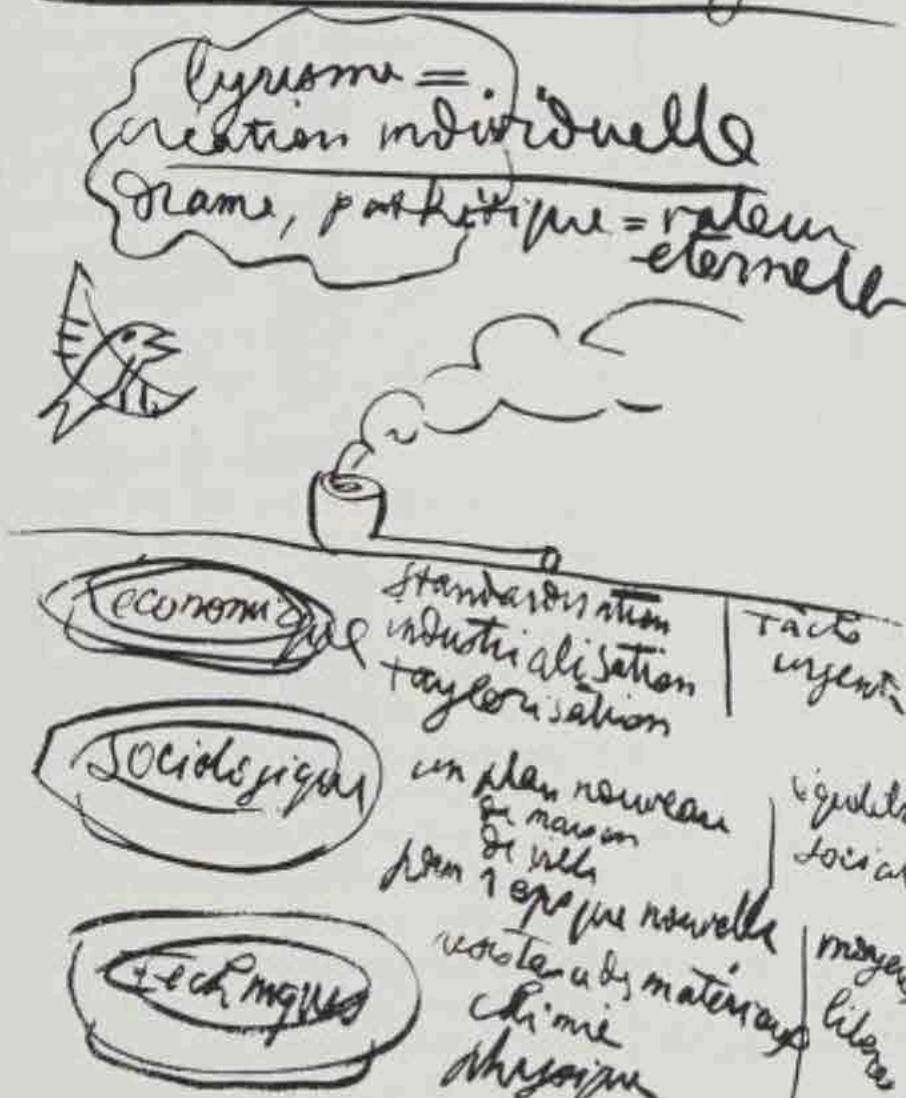 lyrisme =
création individuelle
Drame, pathétique = valeur
eternelle
économique
standardisation
industrialisation
taylorisation
sociologique
un plan nouveau
de maison
de ville
pour 1 epoque nouvelle
techniques
resistance des matériaux
chimie
physique